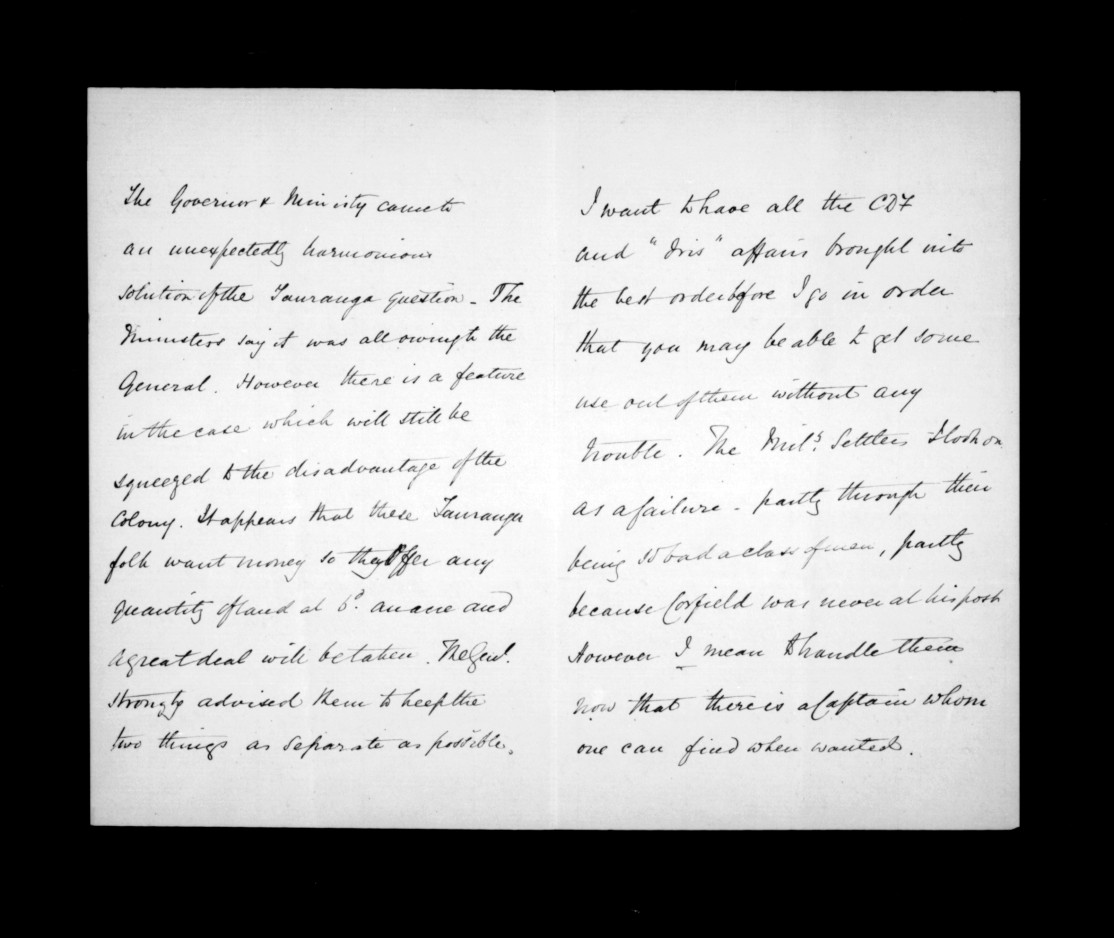 The Governor & Ministry came to
an unexpectedly harmonious
solution of the Tauranga question - The
Ministers say it was all owing to the
General. However there is a feature
in the case which will still be
squeezed to the disadvantage of the
Colony. It appears that these Tauranga
folk want money so they offer any
quantity of land at 6d. an acre and
a great deal will be taken. The Genl.
strongly advised them to keep the
two things as separate as possible.
I want to have all the CDF
and "Iris" affairs brought into
the best order before I go in order
that you may be able to get some
use out of them without any
trouble. The Mily. Settlers I look on
as a failure - partly through their
being so bad a class of men, partly
because Corfield was never at his post
However I mean to handle them
now that there is a Captain whom
one can find when wanted.